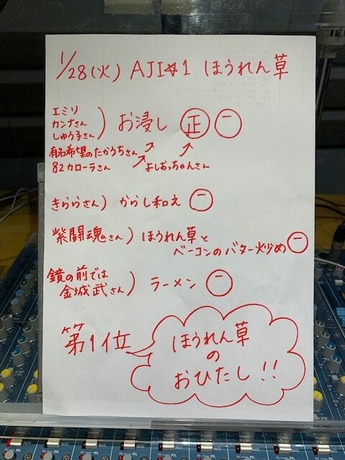 1/28(火) AJI☆1 ほうれん草
エミリ
カンナさん
しゅう子さん ) お浸し 正 一
有名希望のたかうちさん
82カローラさん
よしおっちゃんさん
きららさん) からし和え 一
紫闘魂さん) ほうれん草と
ベーコンのバター炒め 一
鏡の前では
金城武さん ) ラーメン 一
第1位
ほうれん草
の
おひたし!!